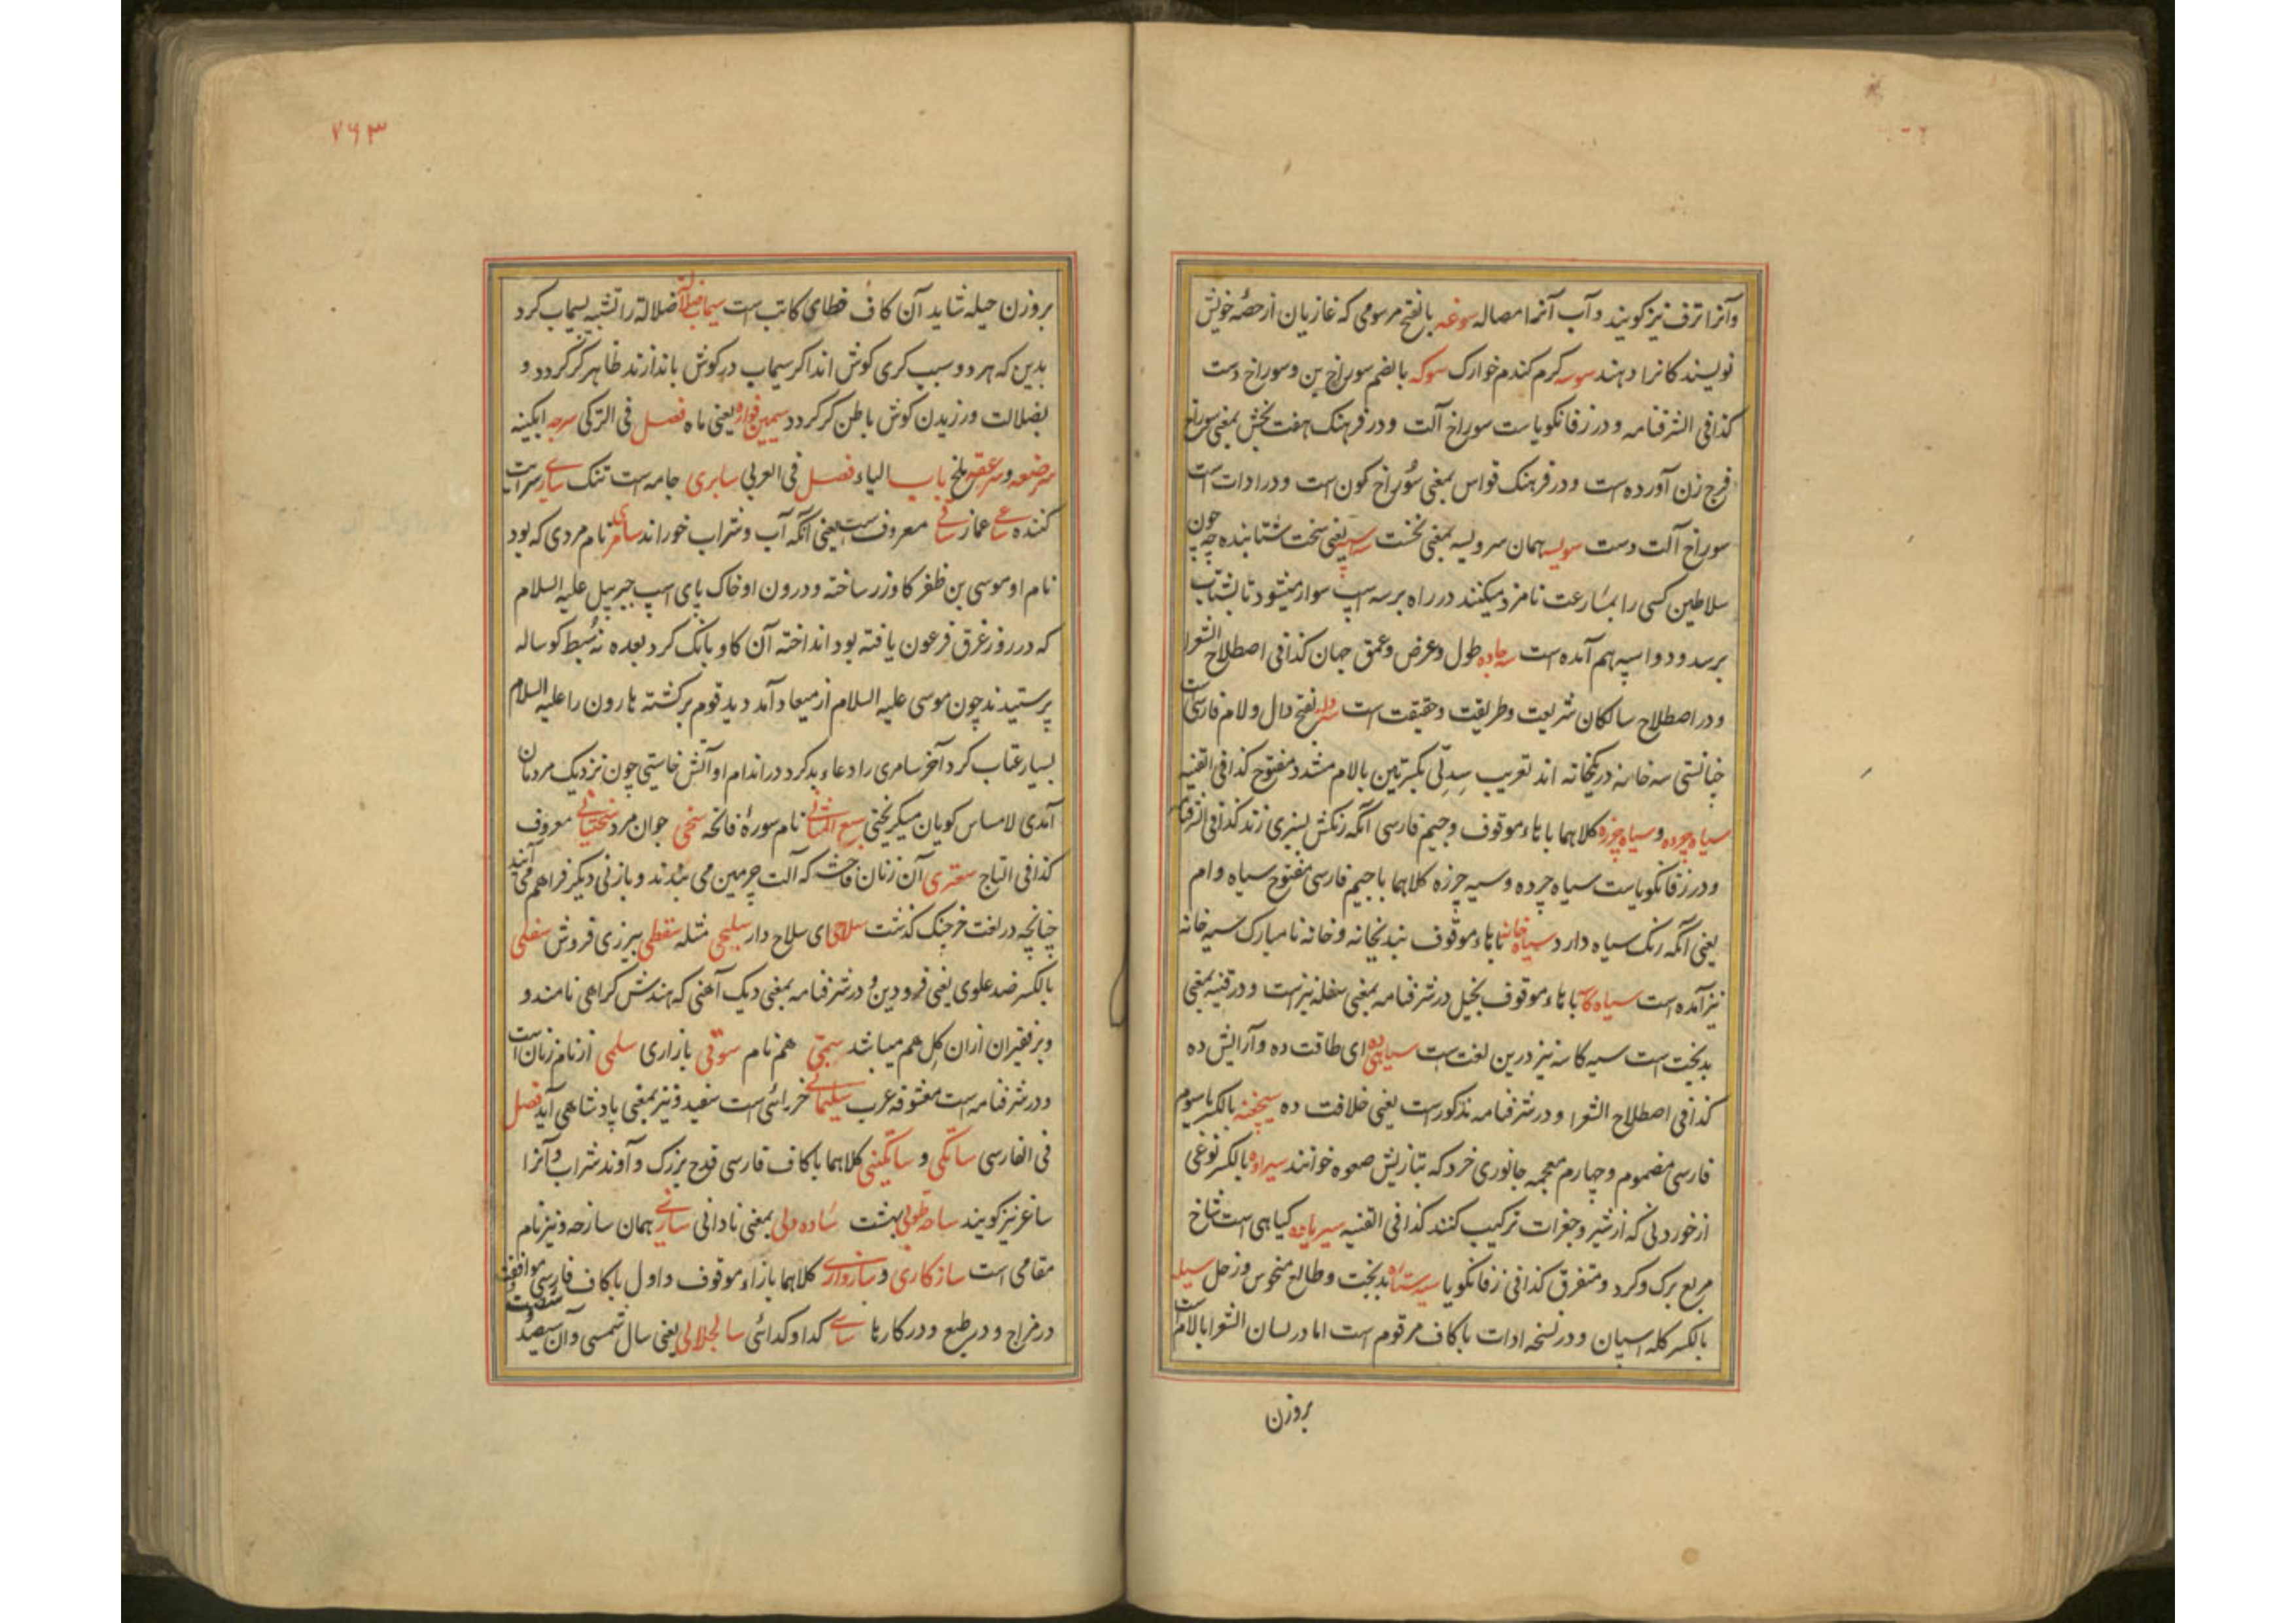 وآنرا ترف نیز کویند و آب آنرا مصاله سوغه بالفتح مرسومی که غازیان از حصهٔ خویش
نویسند کانرا دهند سوسه کرم کندم خوارک سوکه بالضم سوراخ بن و سوراخ دست
کذا فی الشرفنامه و در زفانکویاست سوراخ آلت و در فرهنک هفت بخش بمعنی سوراخ
فرج زن آورده است و در فرهنک قواس بمعنی سوراخ کون است و در ادات است
سوراخ آلت دست سویسه همان سرویسه بمعنی نخست سه اسپه یعنی سخت شتابنده چه چون
سلاطین کسی را بمسارعت نامزد میکنند در راه بر سه اسپ سوار میشود تا بشتاب
برسد و دو اسپه هم آمده است سه جاده طول و عرض و عمق جهان کذا فی اصطلاح الشعرا
و در اصطلاح سالکان شریعت و طریقت و حقیقت است سه دله بفتح دال و لام فارسی است
سه خانه در یکخانه اند تعریب سدلی بکسرتین بالام مشدد مفتوح کذا فی القنیه
سیاه چرده و سیاه چرزه کلاهما باهاء موقوف و جیم فارسی آنکه رنکش بسبزی زند کذا فی الشرفنامه
و در زفانکویاست سیاه چرده و سیه چرزه کلاهما باجیم فارسی مفتوح سیاه وام
یعنی آنکه رنک سیاه دارد سیاه خانه باهاء موقوف بندیخانه و خانه نامبارک سیه خانه
نیز آمده است سیاه کاسه باهاء موقوف بخیل در شرفنامه بمعنی سفله نیز است و در قنیه بمعنی
بدبخت است سیه کاسه نیز درین لغت است ای طاقت ده و آرایش ده
کذا فی اصطلاح الشعرا و در شرفنامه مذکور است یعنی خلافت ده بالکسر باسوم
فارسی مضموم و چهارم معجمه جانوری خرد که بتازیش صعوه خوانند سیراوه بالکسر نوعی
از خوردنی که از شیر و جغرات ترکیب کنند کذا فی القنیه کیاهی است شاخ
مربع برک و کرد و متفرق کذا فی زفانکویا سیه ستاره بدبخت و طالع منحوس و زحل سیله
بالکسر کله اسپان و در نسخه ادات باکاف مرقوم است اما در لسان الشعرا بالام است
بروزن
۷۶۳
بروزن حیله شاید آن کاف خطای کاتب است سیماب ضلالة ضلالة را تشبیه بسیماب کرد
بدین که هر دو سبب کری کوش اند اکر سیماب در کوش باندازند ظاهر کر کردد و
بضلالت ورزیدن کوش باطن کر کردد سیمین قواره یعنی ماه فصل فی الترکی سرچه ابکینه
ملخ باب الیاء فصل فی العربی سابری جامه است تنک ساری سرایت
کننده ساعی غماز ساقی معروف است یعنی آنکه آب و شراب خوراند سامری نام مردی که بود
نام او موسی بن ظفر کاو زر ساخته و درون او خاک پای اسپ جبرییل علیه السلام
که در روز غرق فرعون یافته بود انداخته آن کاو بانک کرد بعده نه سبط کوساله
پرستیدند چون موسی علیه السلام از میعاد آمد دید قوم برکشته هارون را علیه السلام
بسیار عتاب کرد آخر سامری را دعاء بد کرد در اندام او آتش خاستی چون نزدیک مردمان
آمدی لامساس کویان میکریختی سبع المثانی نام سورهٔ فاتحه سخی جوان مرد سختیانی معروف
کذا فی التاج سعتری آن زنان فاحشه که آلت چرمین می بندند و بازنی دیکر فراهم می آیند
چنانچه در لغت خرچنک کذشت سلاحی ای سلاح دار سلیحی مثله سقطی ببرزی فروش سفلی
بالکسر ضد علوی یعنی فرودین و در شرفنامه بمعنی دیک آهنی که هندش کراهی نامند و
و بر فقیران ازان کل هم میباشد سمی هم نام سوقی بازاری سلمی از نام زنان است
و در شرفنامه است معشوقه عرب سلیمانی خرزائی است سفید و نیز بمعنی پادشاهی آید فصل
فی الفارسی ساتکی و ساتکینی کلاهما باکاف فارسی قدح بزرک و آوند شراب و آنرا
ساغر نیز کویند ساحه طوبی بهشت ساده دلی بمعنی نادانی ساری همان سازحه و نیز نام
مقامی است سازکاری و سازواری کلاهما بازاء موقوف و اول باکاف فارسی موافقت
در مزاج و در طبع و در کارها ساسی کدا و کدائی سال جلالی یعنی سال شمسی و آن سیصد و شصت و